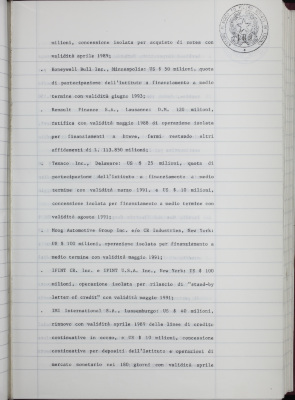 milioni, concessione isolata per acquisto di notes con
validità aprile 1989;
. Honeywell Bull Inc., Minneapolis: US $ 50 milioni, quota
di partecipazione dell'Istituto a finanziamento a medio
termine con validità giugno 1992;
. Renault Finance S.A., Lausanne: D.M. 120 milioni,
ratifica con validità maggio 1988 di operazione isolata
per finanziamenti a breve, fermi restando altri
affidamenti di L. 113.850 milioni;
. Texaco Inc., Delaware: US $ 25 milioni, quota di
partecipazione dell'Istituto a finanziamento a medio
termine con validità marzo 1991, e US $ 10 milioni,
concessione isolata per finanziamento a medio termine con
validità agosto 1991;
. Automotive Group Inc. c/o Industries, New York:
US $ 100 milioni, operazione isolata per finanziamento a
medio termine con validità maggio 1991;
. Inc. e U.S.A. Inc., New York: US $ 100
milioni, operazione isolata per rilascio di "stand-by
letter of credit" con validità maggio 1991;
. International S.A., US $ 40 milioni,
rinnovo con validità aprile 1989 delle linee di credito
continuative in corso, e US $ 10 milioni, concessione
continuativa per depositi dell'Istituto e operazioni di
mercato monetario sui 180 giorni con validità aprile